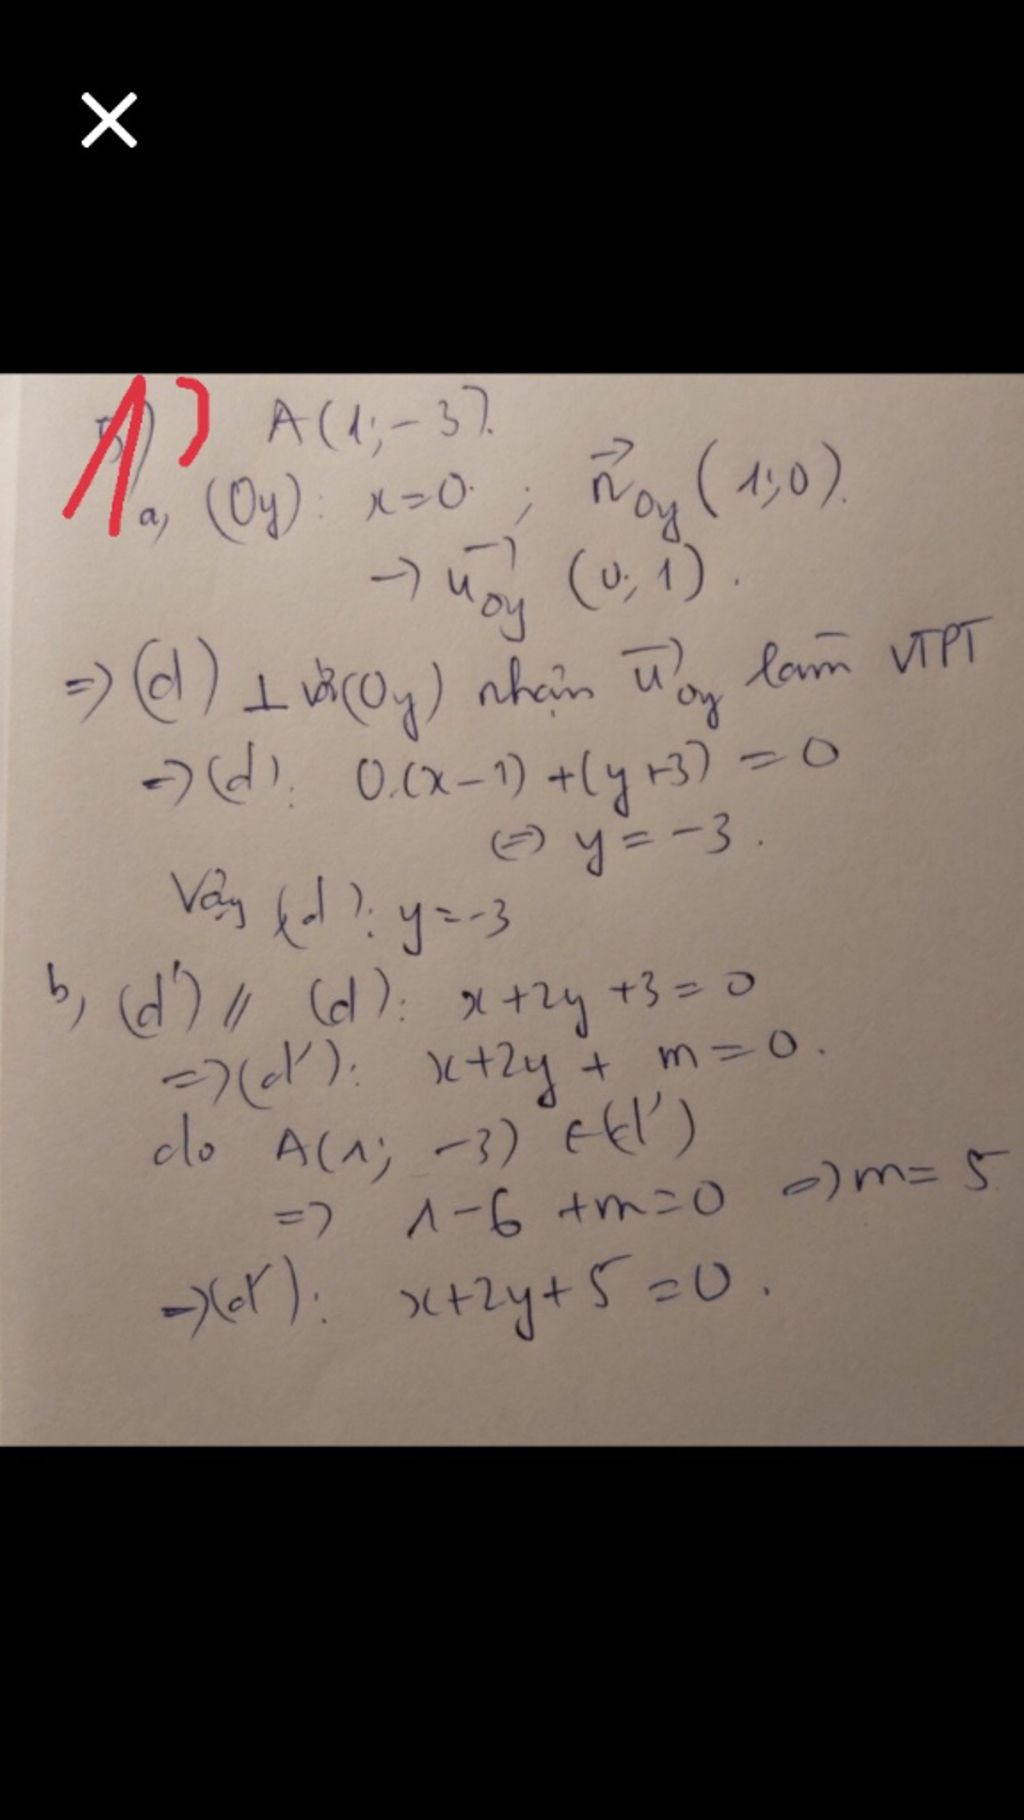 1)
5) A(1; -3).
a, (Oy): x=0 ; n⃗Oy (1;0).
→ u⃗Oy (0; 1).
=> (d) ⊥ với (Oy) nhận u⃗Oy làm VTPT
=> (d): 0.(x-1) + (y+3) = 0
<=> y = -3.
Vậy (d): y=-3
b, (d') // (d): x+2y+3=0
=> (d'): x+2y + m=0.
do A(1; -3) ∈ (d')
=> 1-6 +m=0 => m= 5
=> (d'): x+2y+5=0.